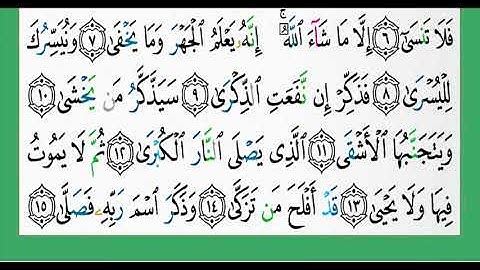 فَلَا تَنسَىٰٓ ٦ إِلَّا مَا شَآءَ ٱللَّهُۚ إِنَّهُۥ يَعْلَمُ ٱلْجَهْرَ وَمَا يَخْفَىٰ ٧ وَنُيَسِّرُكَ
لِلْيُسْرَىٰ ٨ فَذَكِّرْ إِن نَّفَعَتِ ٱلذِّكْرَىٰ ٩ سَيَذَّكَّرُ مَن يَخْشَىٰ ١٠
وَيَتَجَنَّبُهَا ٱلْأَشْقَى ١١ ٱلَّذِى يَصْلَى ٱلنَّارَ ٱلْكُبْرَىٰ ١٢ ثُمَّ لَا يَمُوتُ
فِيهَا وَلَا يَحْيَىٰ ١٣ قَدْ أَفْلَحَ مَن تَزَكَّىٰ ١٤ وَذَكَرَ ٱسْمَ رَبِّهِۦ فَصَلَّىٰ ١٥